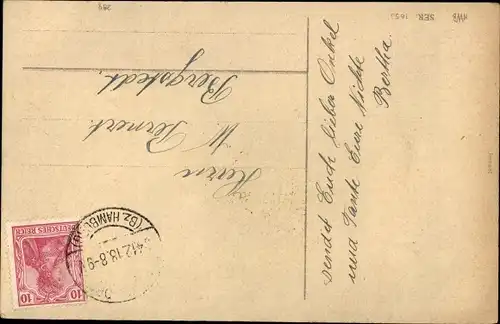 sendet Euch lieber Onkel
und Tante Eure Nichte
Bertha.
Herrn
W. Pernert.
Bergstedt.
DEUTSCHES REICH
10 10
(BZ. HAMBURG)
4.12.18.8-9
NWB SER. 1653
289